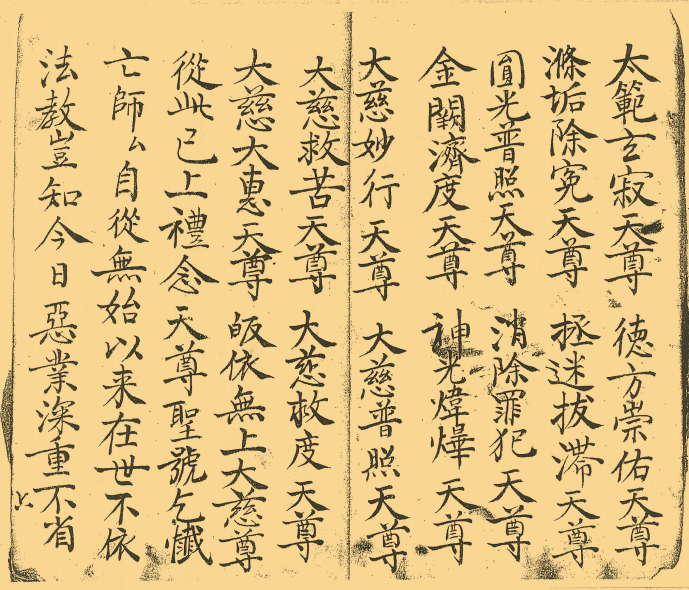 太範玄寂天尊 德方崇佑天尊
滌垢除冤天尊 拯迷拔滯天尊
圓光普照天尊 消除罪犯天尊
金闕濟度天尊 神光煒燁天尊
大慈妙行天尊 大慈普照天尊
大慈救苦天尊 大慈救度天尊
大慈大惠天尊 皈依無上大慈尊
從此已上禮念天尊聖號乞懺
亡師厶自從無始以来在世不依
法教豈知今日惡業深重不省